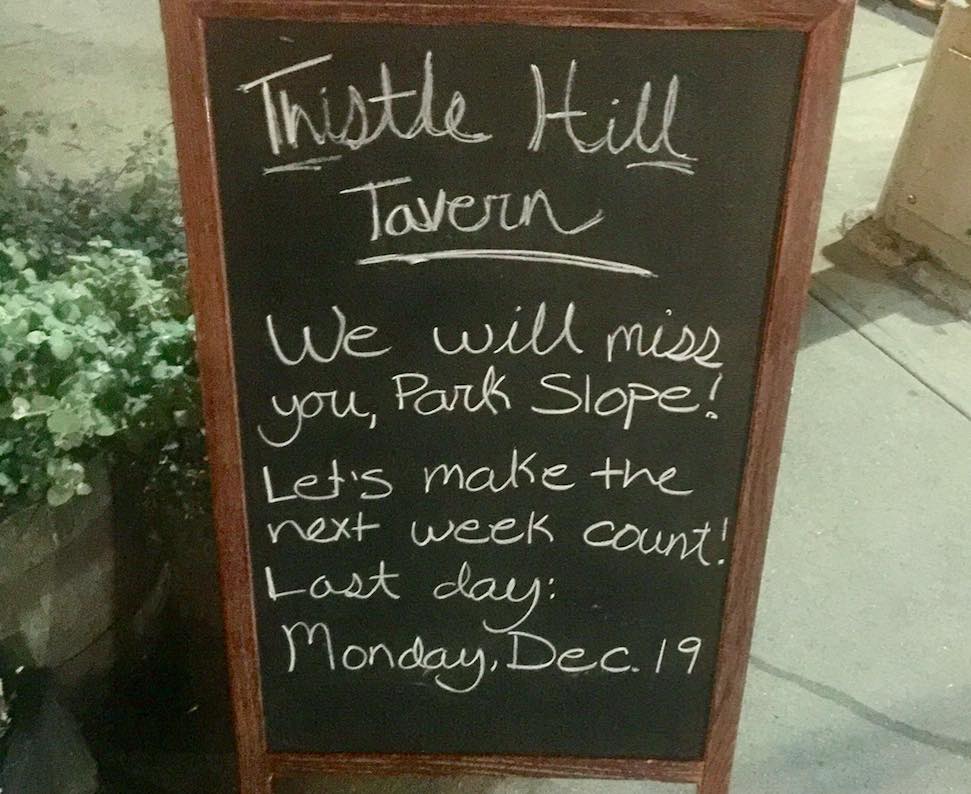 Thistle Hill
Tavern
We will miss
you, Park Slope!
Let's make the
next week count!
Last day:
Monday, Dec. 19